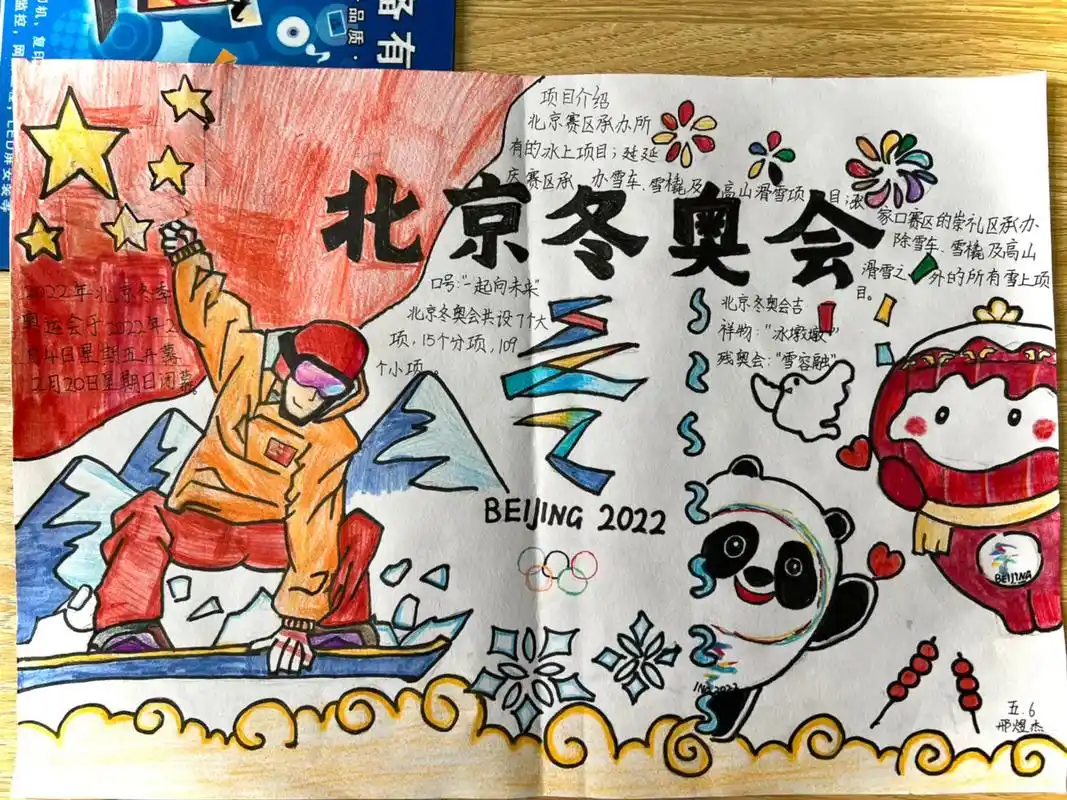 北京冬奥会
项目介绍
北京赛区承办所
有的冰上项目;延延
庆赛区承 办雪车、雪橇及 高山滑雪项 目;
家口赛区的崇礼区承办
除雪车、雪橇及高山
滑雪之 外的所有雪上项
目。
口号:"一起向未来"
北京冬奥会共设7个大
项,15个分项,109
个小项。
北京冬奥会吉
祥物:"冰墩墩"
残奥会:"雪容融"
2022年北京冬季
奥运会于2022年2
月4日星期五开幕
2月20日星期日闭幕。
BEIJING 2022
BEIJING
ING 2022
五.6
邢煜杰
备有
品质·